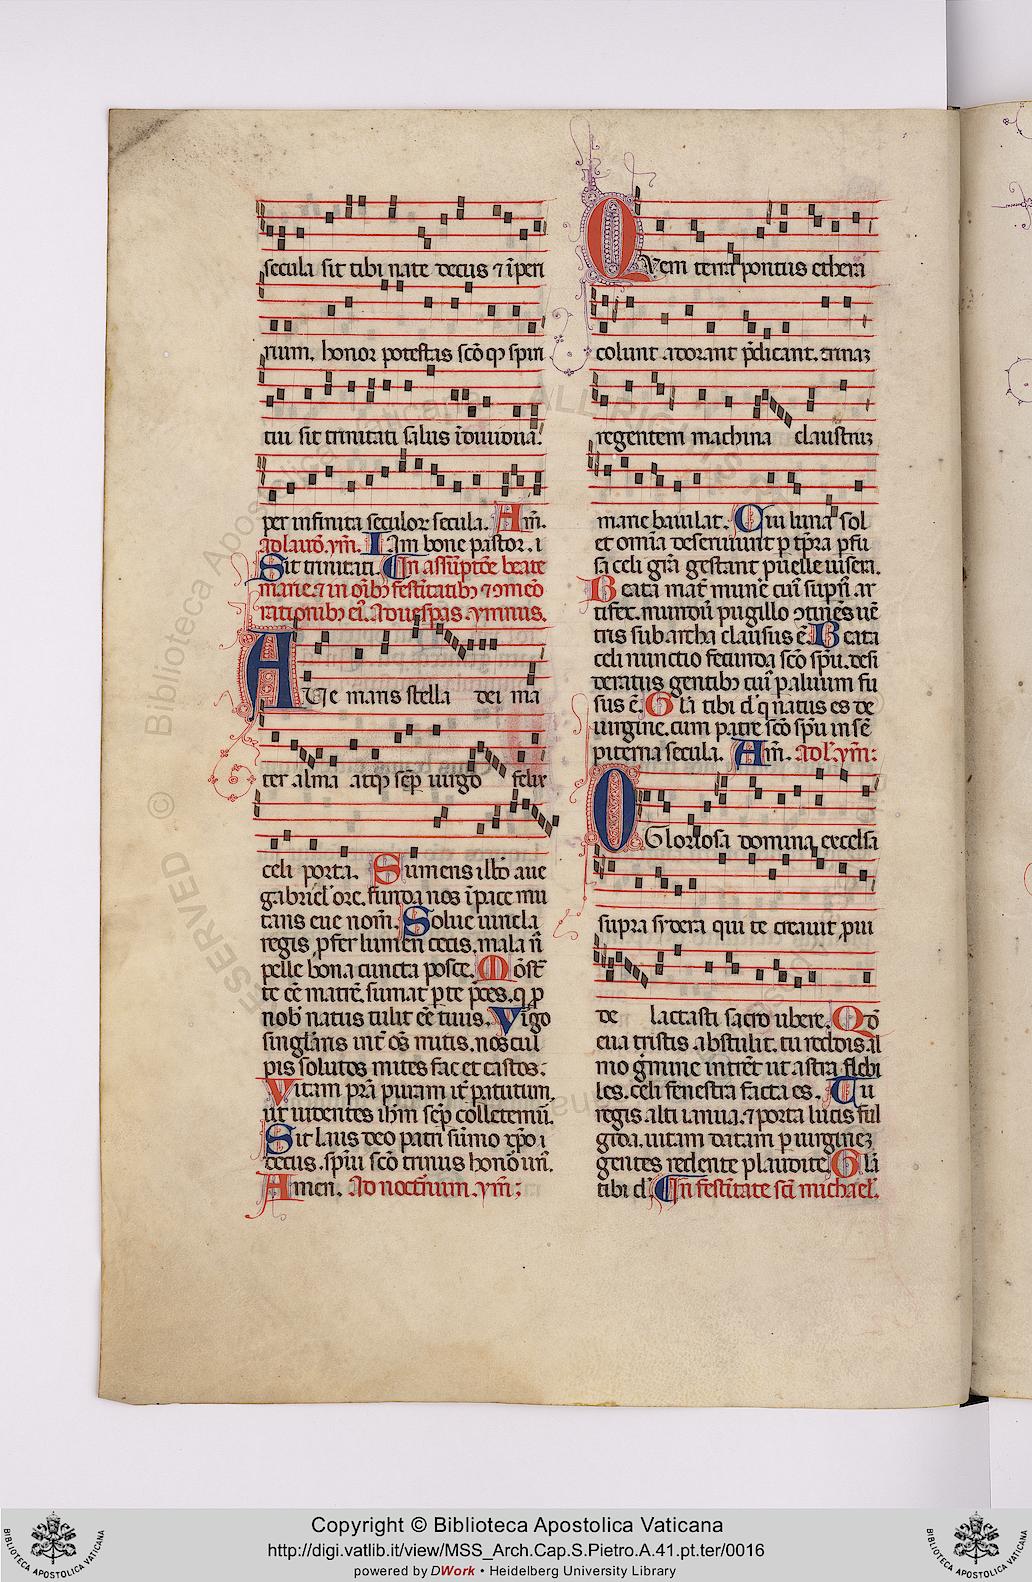 secula sit tibi nate decus ⁊ īperi
rium. honor potestas scōqꝫ spiri
tui sit trinitati salus īdiuidua.
per infinita seculoꝝ secula. Am̄.
ad laud̄. ym̄. Iam bone pastor. ⁊
Sit trinitati. In assūptōe beate
marie. ⁊ in oībꝫ festiuitatibꝫ ⁊ ꝯmeō
rationibꝫ eī. Ad uesꝑas. ymnus.
AUe maris stella dei ma
ter alma atqꝫ sēp uirgo felix
celi porta. Sumens illd̄ aue
gabriel' ore. funda nos ī pace mu
tans eue nom̄. Solue uincla
regis ꝓfer lumen cecis. mala n̄
pelle bona cuncta posce. Mōst̄
te eē matrē. sumat ꝑ te p̄ces. q ꝓ
nob̄ natus tulit eē tuus. Vīgo
singl̄aris int̄ oēs mitis. nos cul
pis solutos mites fac et castos.
Vitam p̄ra puram it̄ para tutum.
ut uidentes ih̄m sēp colletemur̄.
Sit laus deo patri sūmo xp̄o ⁊
decus. sp̄iui scō trinus honō un̄.
Amen. Ad nocturnum. ym̄:
QVem terra pontus ethera
colunt adorant p̄dicant. trinaꝫ
regentem machina claustruꝫ
marie baiulat. Cui luna sol
et omīa deseruiunt ꝑ tp̄ra ꝑfu
sa celi grā gestant puelle uisera.
Beata mat̄ munē cuī supn̄ ar
tifex. mundū pugillo ꝯtinēs uē
tris sub archa clausus ē. Beata
celi nunctio fecunda scō sp̄u. desi
deratus gentibꝫ cuī ꝑ aluum fu
sus ē. Glā tibi dn̄e q natus es de
uirgine. cum patre scō sp̄u in sē
piterna secula. Am̄. ad l'. ym̄:
O Gloriosa domina excelsa
supra sydera qui te creauit ꝓui
de lactasti sacro ubere. Qd̄
eua tristis abstulit. tu reddis al
mo ḡmine intrēt ut astra flebi
les. celi fenestra facta es. Tu
regis alti ianua. ⁊ porta lucis ful
gida. uitam datam ꝑ uirgineꝫ
gentes redente plaudite. Glā
tibi d'. In festiuitate scī michael'.
Copyright © Biblioteca Apostolica Vaticana
http://digi.vatlib.it/view/MSS_Arch.Cap.S.Pietro.A.41.pt.ter/0016
powered by DWork • Heidelberg University Library
BIBLIOTECA APOSTOLICA VATICANA
BIBLIOTECA APOSTOLICA VATICANA